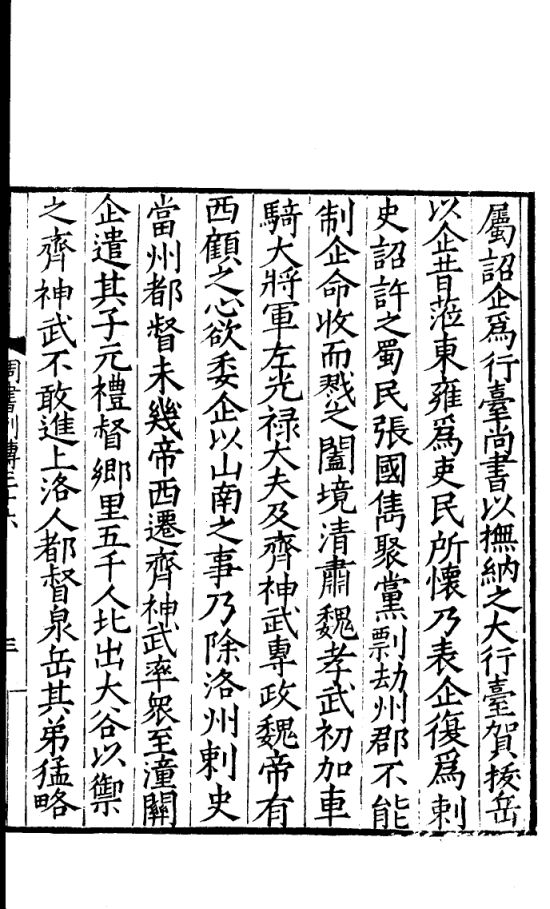 屬詔企爲行臺尚書以撫納之大行臺賀拔岳
以企昔莅東雍爲吏民所懷乃表企復爲刺
史詔許之蜀民張國雋聚黨剽劫州郡不能
制企命收而戮之闔境清肅魏孝武初加車
騎大將軍左光祿大夫及齊神武專政魏帝有
西顧之心欲委企以山南之事乃除洛州刺史
當州都督未幾帝西遷齊神武率衆至潼關
企遣其子元禮督鄉里五千人北出大谷以禦
之齊神武不敢進上洛人都督泉岳其弟猛略
周書列傳三十六
三